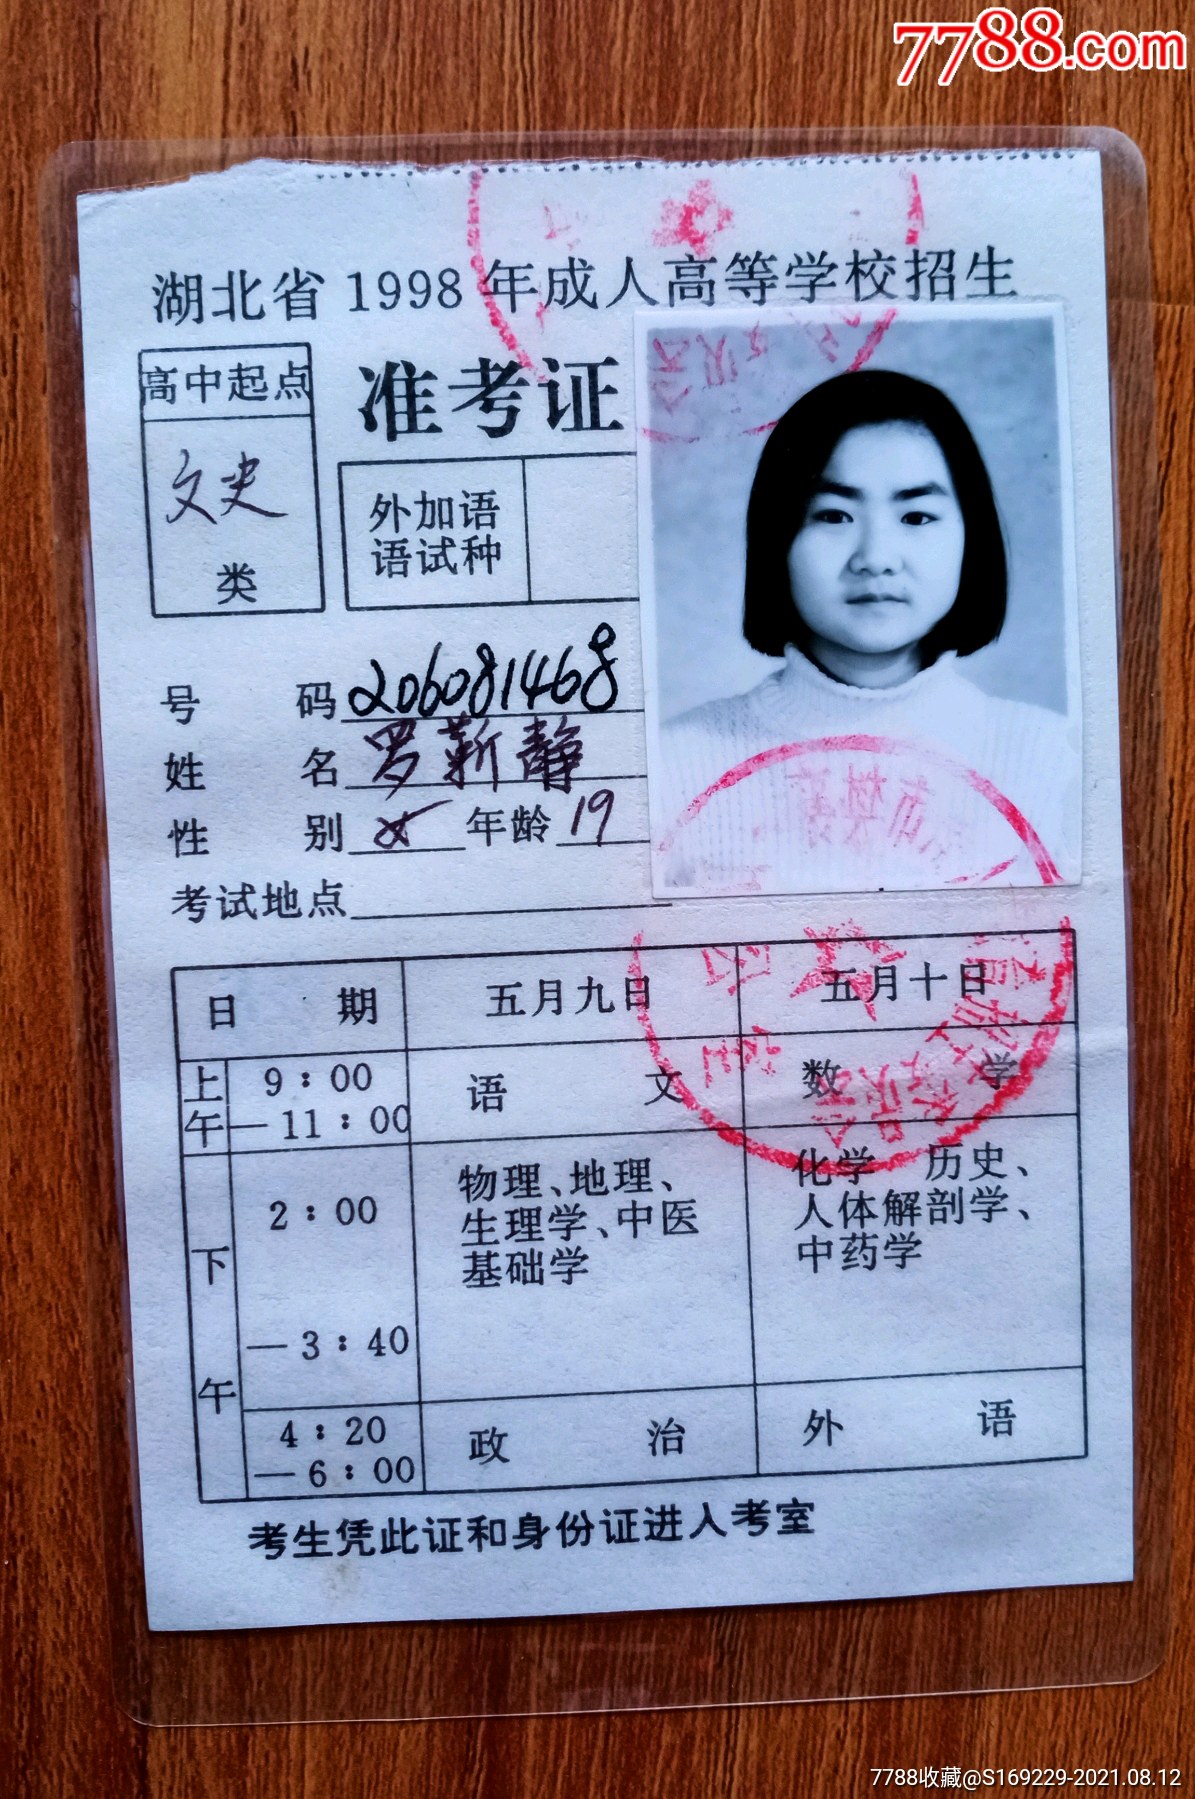 7788.com
湖北省 1998 年成人高等学校招生
高中起点
准考证
文史
类
外加语
语试种
号 码 206081468
姓 名 罗靳静
性 别 女 年龄 19
考试地点
日 期 五月九日 五月十日
上午 9：00—11：00 语 文 数 学
下午 2：00—3：40 物理、地理、生理学、中医基础学 化学 历史、人体解剖学、中药学
4：20—6：00 政 治 外 语
考生凭此证和身份证进入考室
7788收藏@S169229-2021.08.12